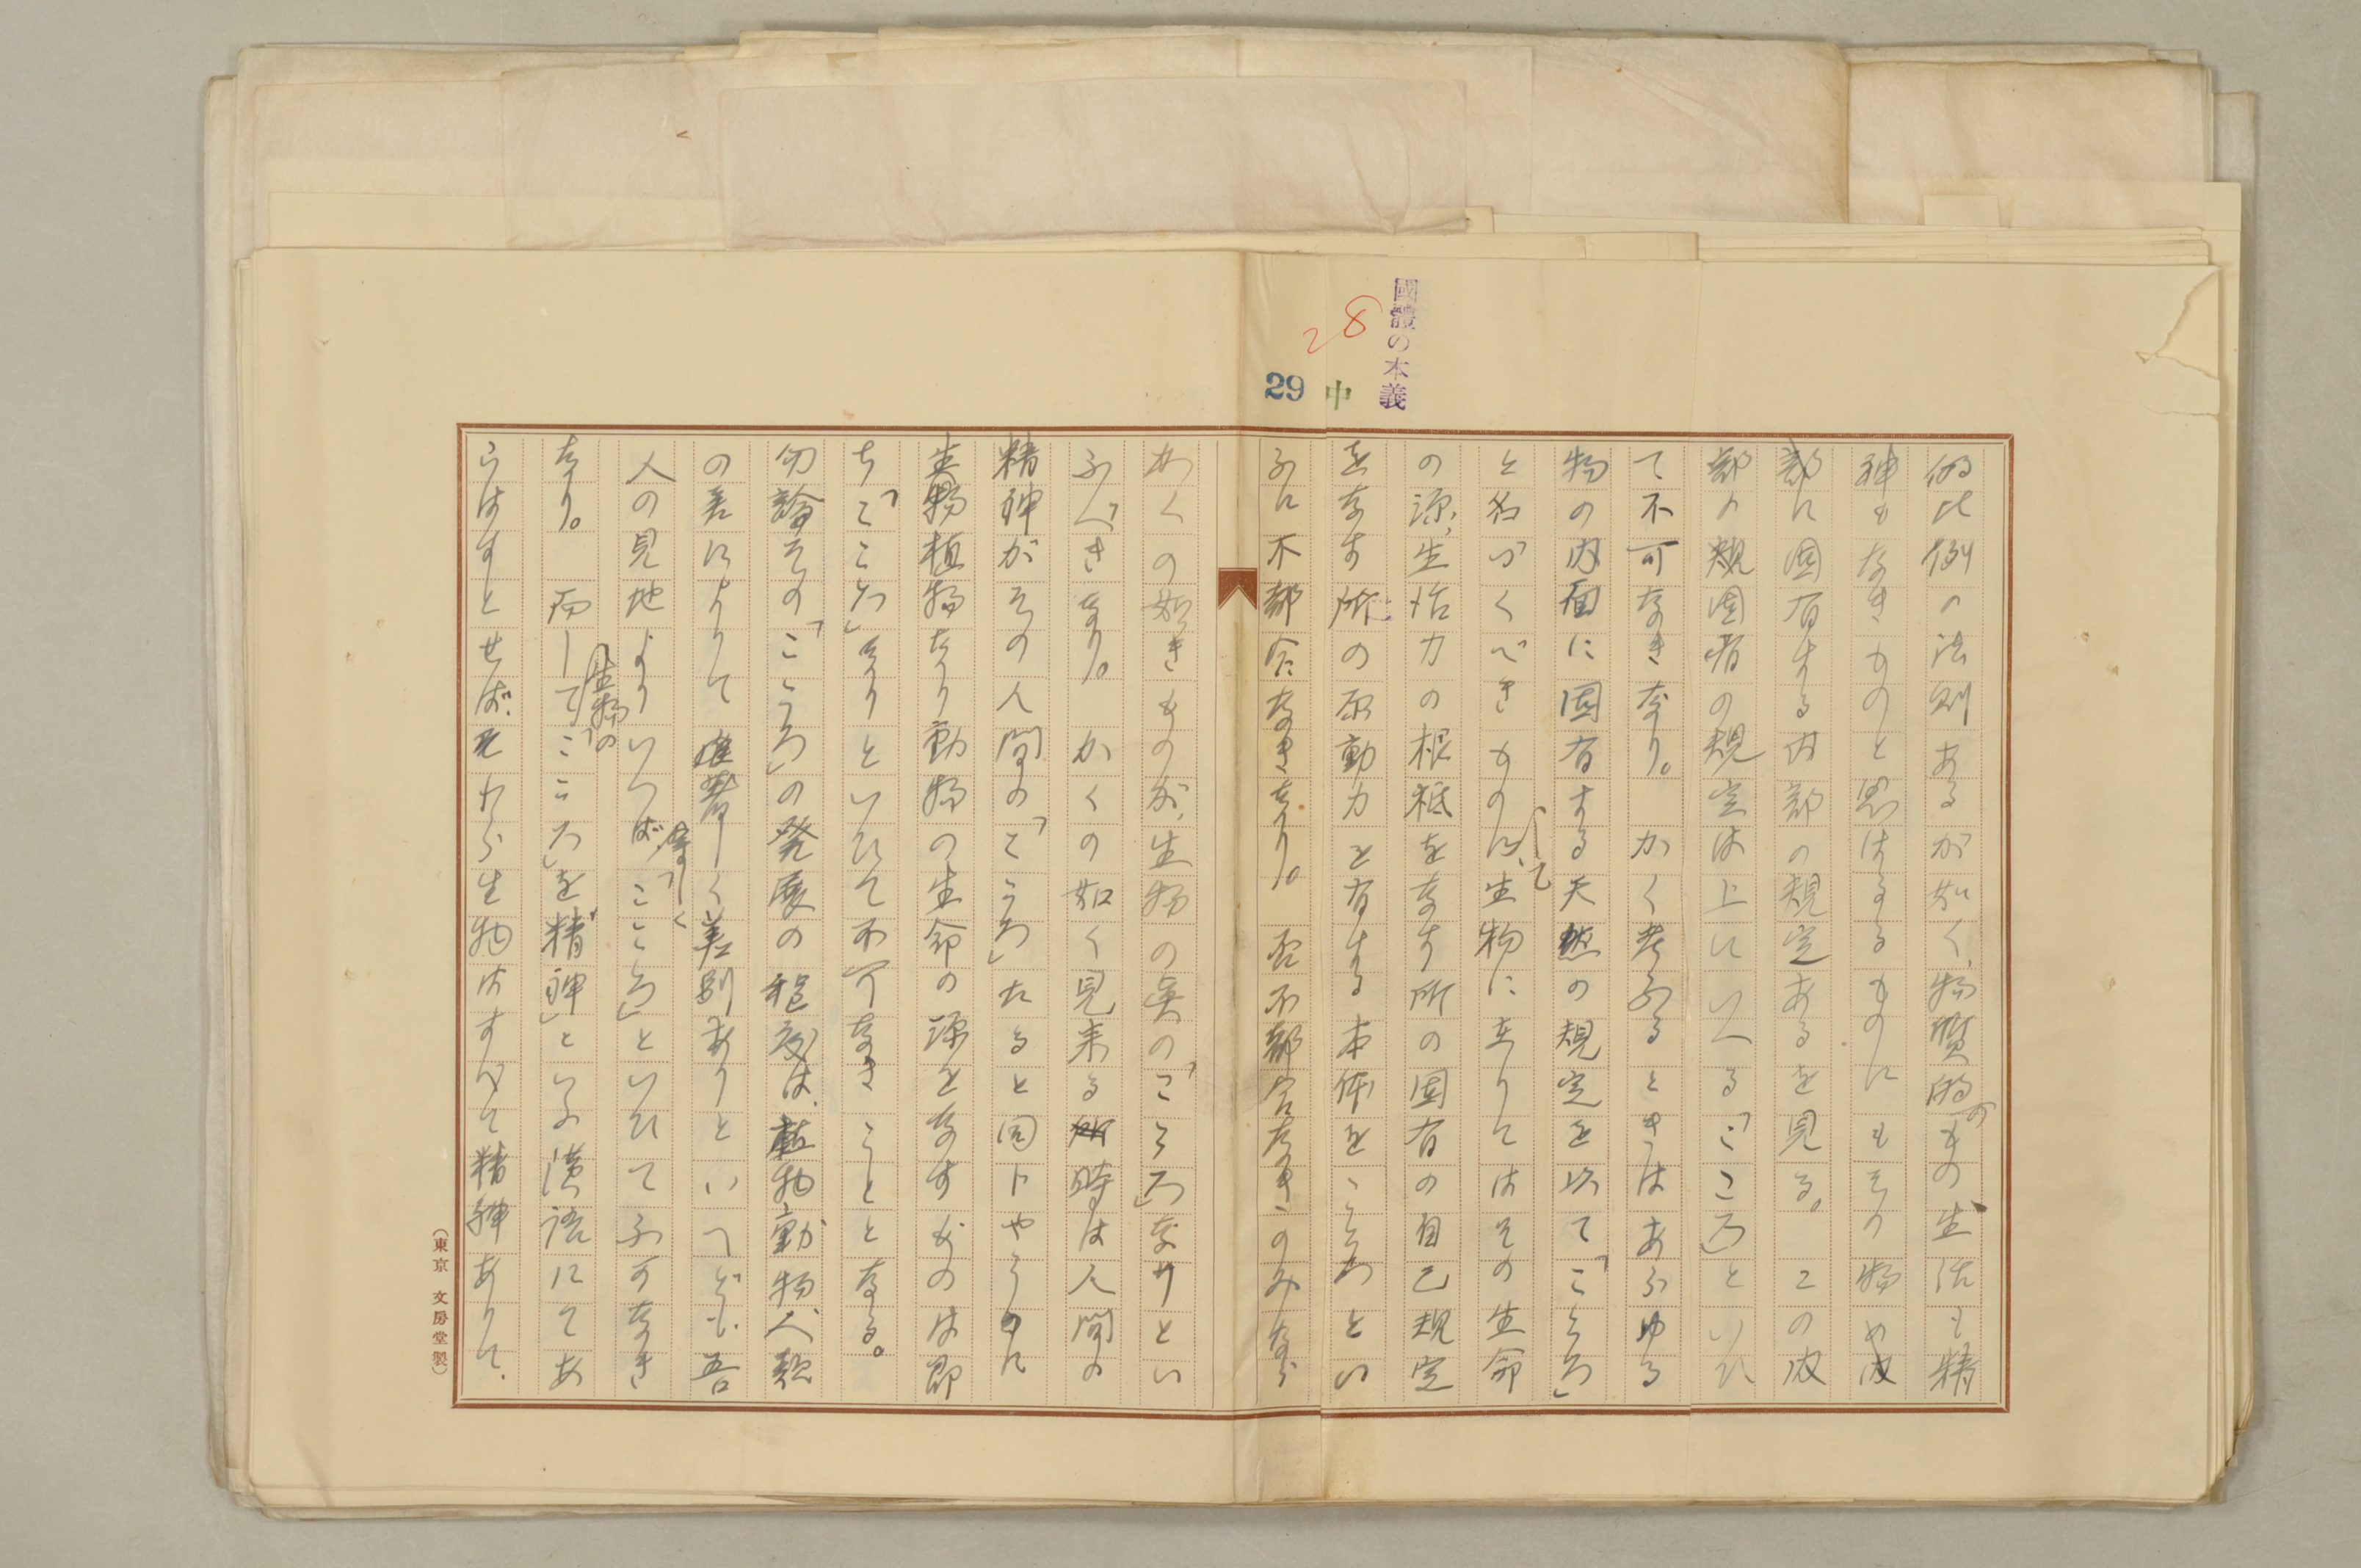 國體の本義
28
29
中
比例の法則あるが如く、物質的のもの生活も精
神もなきものと思はるるものにもその物の内
部に固有する内部の規定あるを見る。この内
部の規固有の規定は上にいへる「こころ」といひ
て不可なきなり。かく考ふるときはあらゆる
物の内面に固有する天然の規定を以て「こころ」
と名づくべきものにして、生物に在りてはその生命
の源、生活力の根柢をなす所の固有の自己規定
をなす所の原動力を有する本体をこころとい
ふに不都合なきなり。否不都合なきのみなら
かくの如きものが、生物の真の「こころ」なりとい
ふべきなり。かくの如く見来る時は人間の
精神がその人間の「こころ」たると同じやうに
生物植物なり動物の生命の源をなすものは即
ち「こころ」なりといひて不可なきこととなる。
勿論その「こころ」の発展の程度は、植物動物人類
の差によりて著しく差別ありといへども、吾
人の見地よりいへば、等しく「こころ」といひて不可なき
なり。而して生物の「こころ」を「精神」といふ漢語にてあ
らはすとせば、それら生物はすべて精神ありて、
(東京 文房堂製)